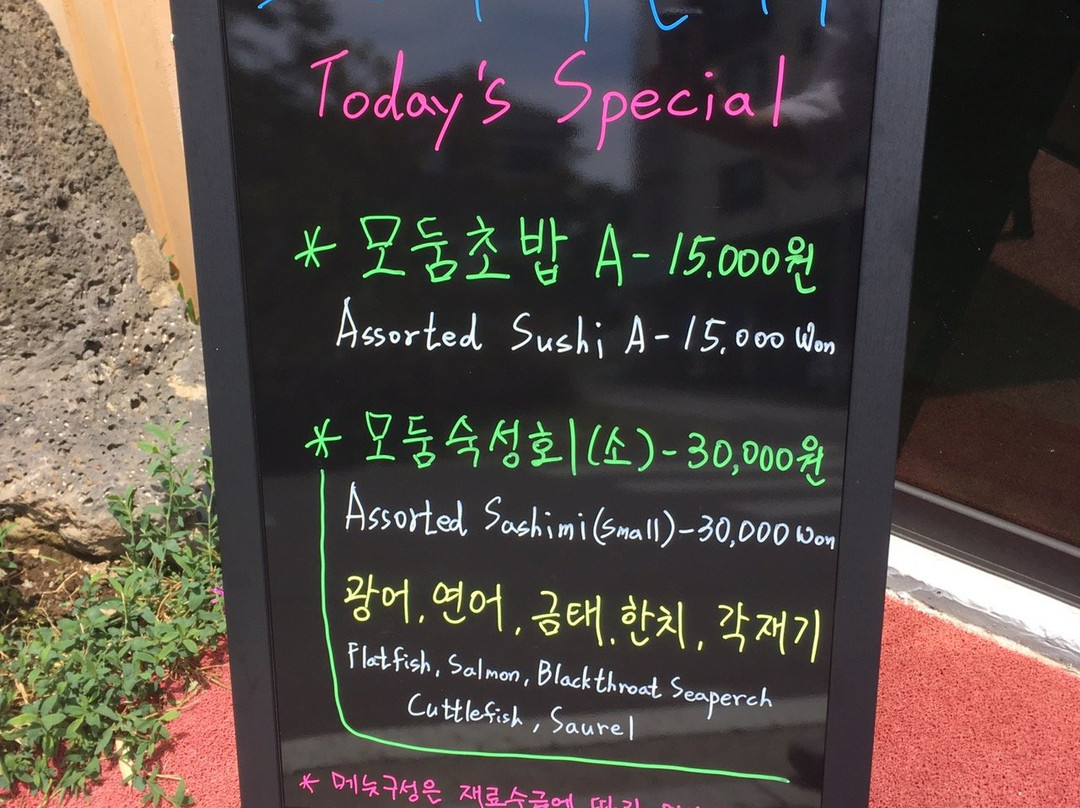 Today's Special
* 모둠초밥 A - 15.000원
Assorted Sushi A - 15,000 Won
* 모둠숙성회(소) - 30,000원
Assorted Sashimi (small) - 30,000 Won
광어, 연어, 금태, 한치, 각재기
Flatfish, Salmon, Blackthroat Seaperch
Cuttlefish, Saurel
* 메뉴구성은 재료수급에 따라